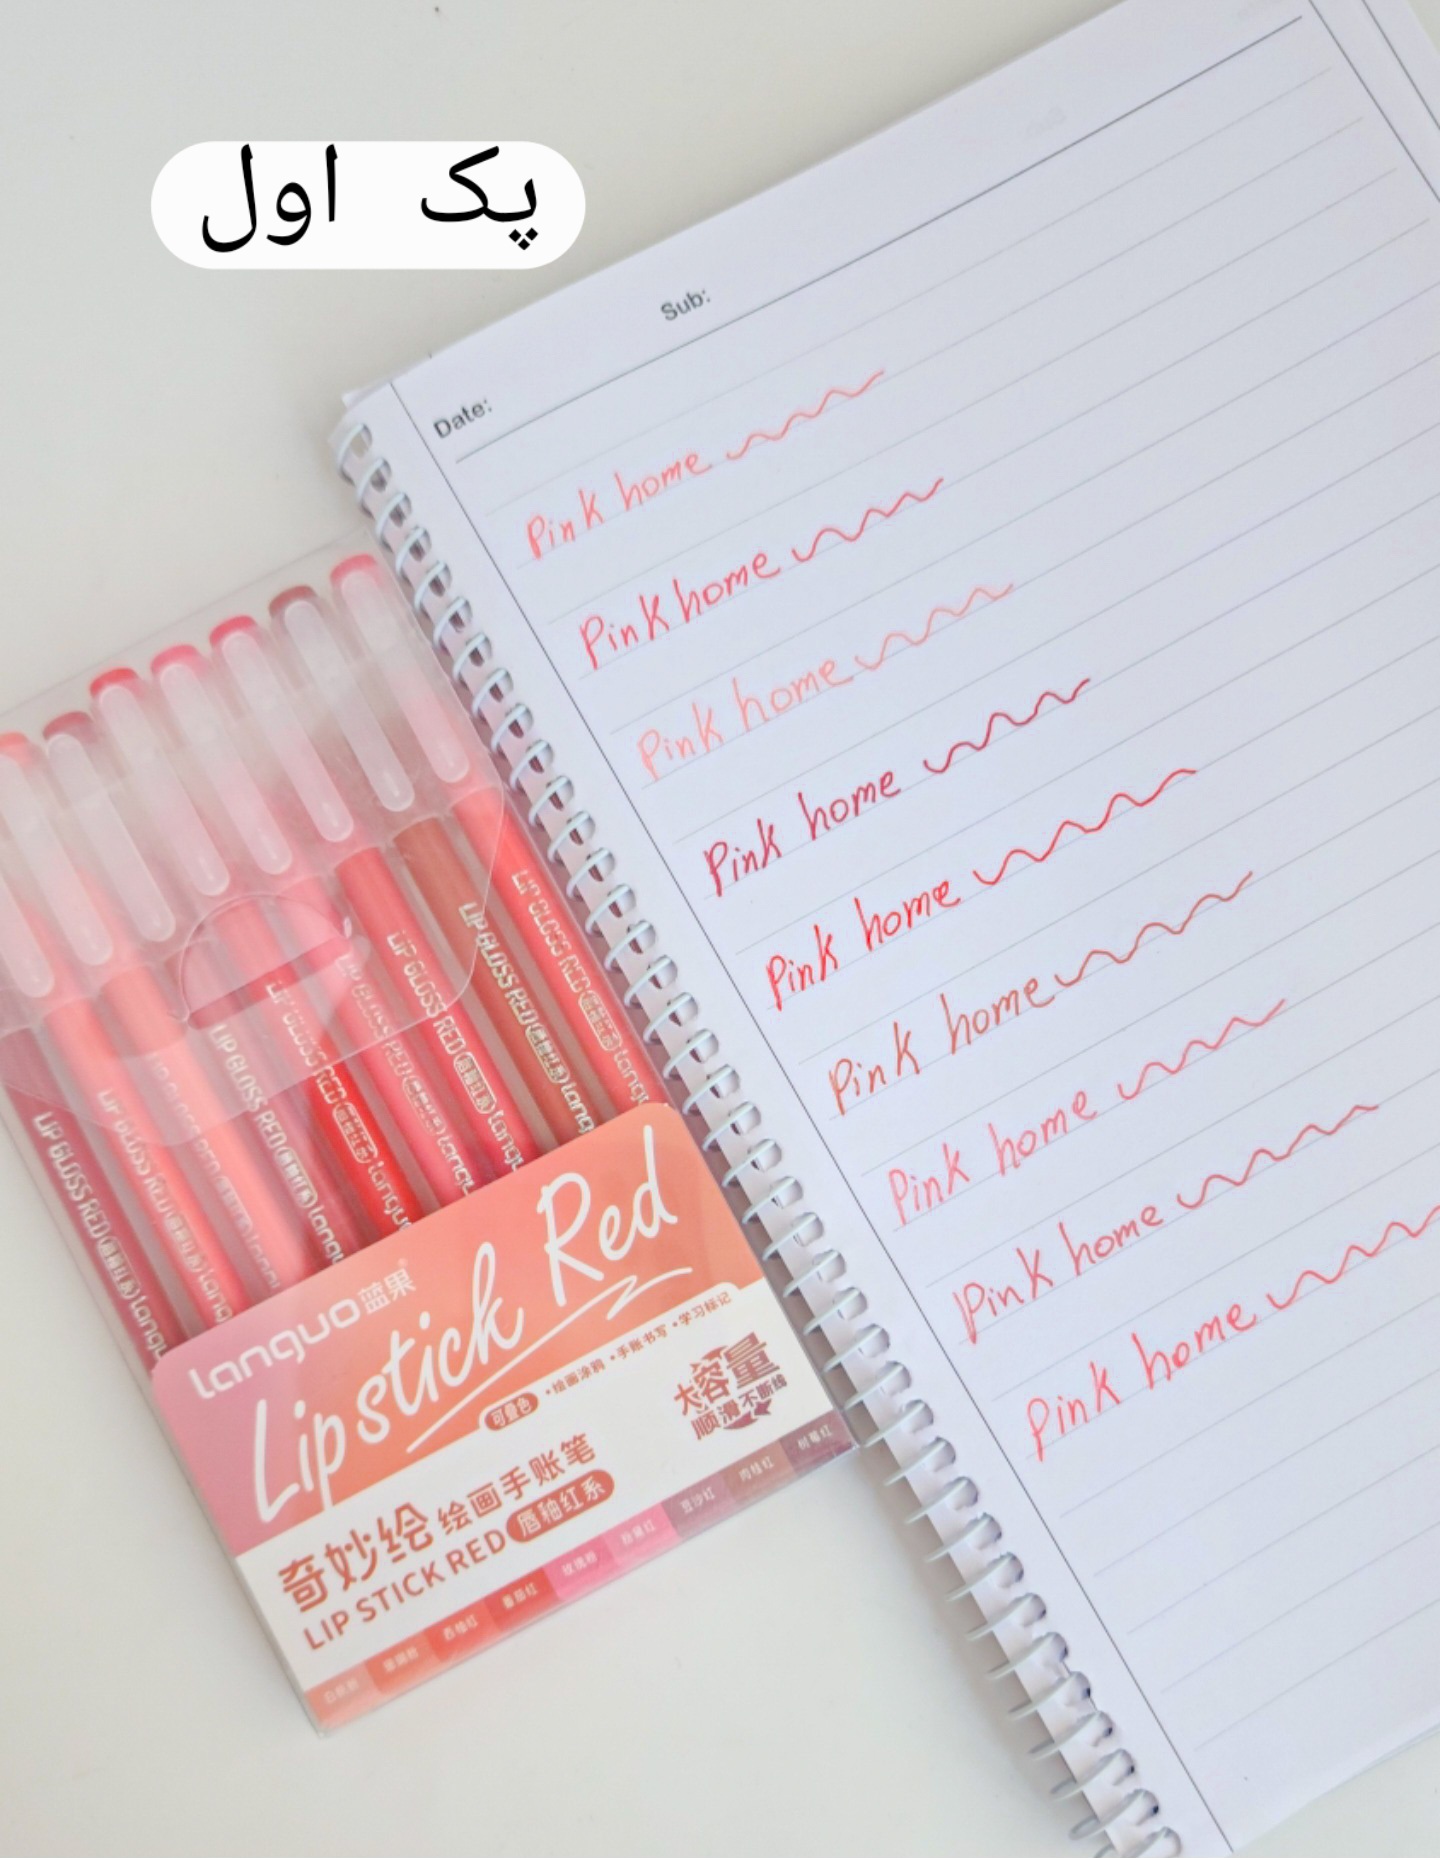 پک اول
Sub:
Date:
Pink home
Pink home
Pink home
Pink home
Pink home
Pink home
Pink home
Pink home
Pink home
LIP GLOSS RED languo
LIP GLOSS RED languo
LIP GLOSS RED languo
LIP GLOSS RED languo
LIP GLOSS RED languo
LIP GLOSS RED languo
LIP GLOSS RED languo
LIP GLOSS RED languo
LIP GLOSS RED languo
languo 蓝果
Lipstick Red
可叠色 •绘画涂鸦 •手账书写 •学习标记
大容量
顺滑不断线
奇妙绘 绘画手账笔
LIP STICK RED 唇釉红系
西柚红 番茄红 玫瑰粉 豆沙红 肉桂红 树莓红